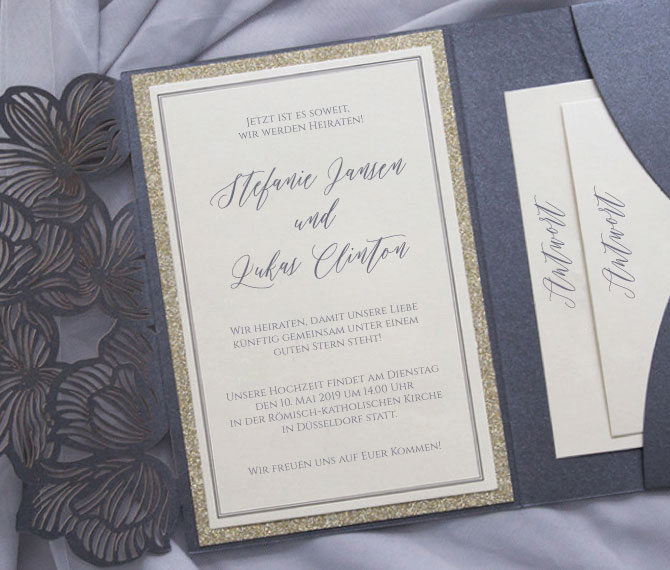 Jetzt ist es soweit,
wir werden Heiraten!
Stefanie Jansen
und
Lukas Clinton
Wir heiraten, damit unsere Liebe
künftig gemeinsam unter einem
guten Stern steht!
Unsere Hochzeit findet am Dienstag
den 10. Mai 2019 um 14.00 Uhr
in der Römisch-katholischen Kirche
in Düsseldorf statt.
Wir freuen uns auf Euer Kommen!
Antwort
Antwort